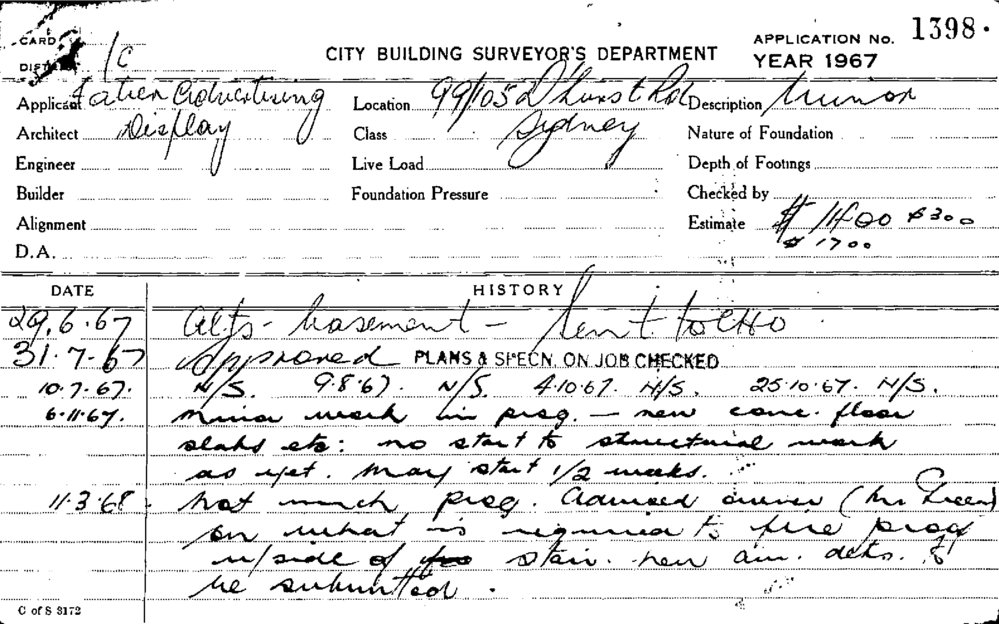 CARD
DIST /C
CITY BUILDING SURVEYOR'S DEPARTMENT
APPLICATION No. 1398.
YEAR 1967
Applicant Advertising Location 99/105 D'hurst Rd Description Minor
Architect Display Class Sydney Nature of Foundation
Engineer Live Load Depth of Footings
Builder Foundation Pressure Checked by
Alignment Estimate $ 1400 $300
D.A. $ 1700
DATE HISTORY
29.6.67 Alts - basement -
31.7-67 Approved PLANS & SPECN. ON JOB CHECKED
10.7.67. N/S. 9.8.67. N/S. 4.10.67. N/S. 25.10.67. N/S.
6.11.67. Minor work in prog. - new conc. floor
slabs etc: no start to structural work
as yet. May start 1/2 weeks.
11.3.68. Not much prog. Advised owner (Mr Green)
on what is required to fire proof
u/side of stair. new am. dets. to
be submitted.
C of S 3172